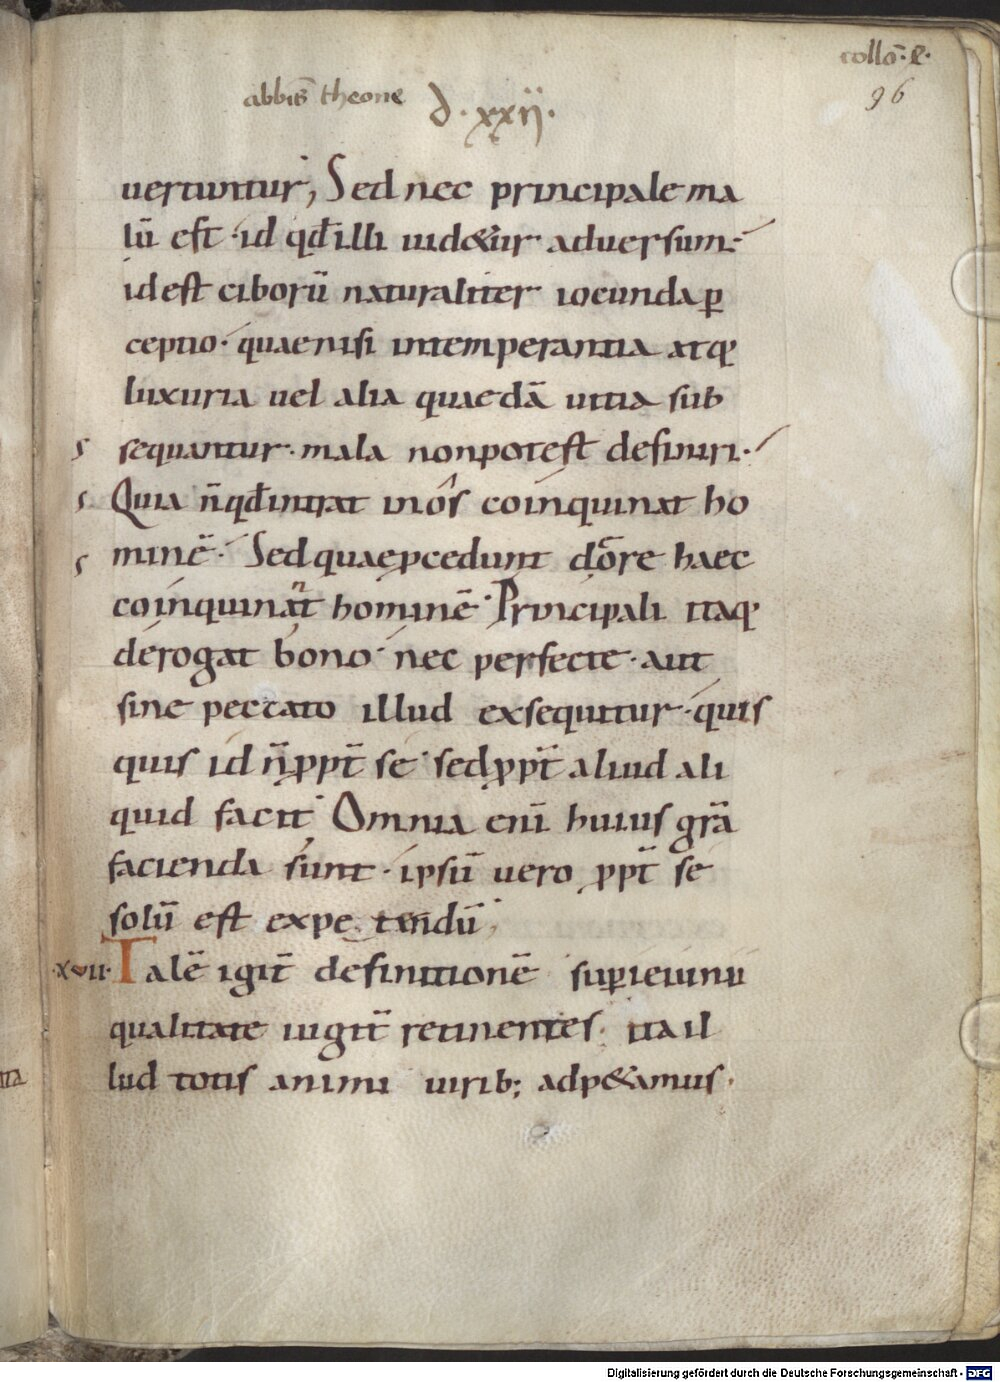 collō·e·
96
abbīs theone d·xxii·
uertuntur, Sed nec principale ma
lū est· id qđ illi uid&ur aduersum·
id est ciborū naturaliter iocunda ꝑ
ceptio· quae nisi intemperantia atq;
luxuria uel alia quaedā uitia sub
sequantur· mala non potest definiri·
Quia n̄ qđ intrat in os coinquinat ho
minē· Sed quae ꝓcedunt d ōre haec
coinquinant hominē· Principali itaq;
derogat bono· nec perfecte· aut
sine peccato illud exsequitur· quis
quis id n̄ ꝓpt̄ se· sed ꝓpt̄ aliud ali
quid facit· Omnia enī huius grā
facienda sunt· ipsū vero ꝓpt̄ se
solū est expetendū·
·xvii· Talē igit̄ definitionē sup ieiunii
qualitate iugit̄ retinentes· ita il
lud totis animi uirib; adp&amus·
Digitalisierung gefördert durch die Deutsche Forschungsgemeinschaft - DFG